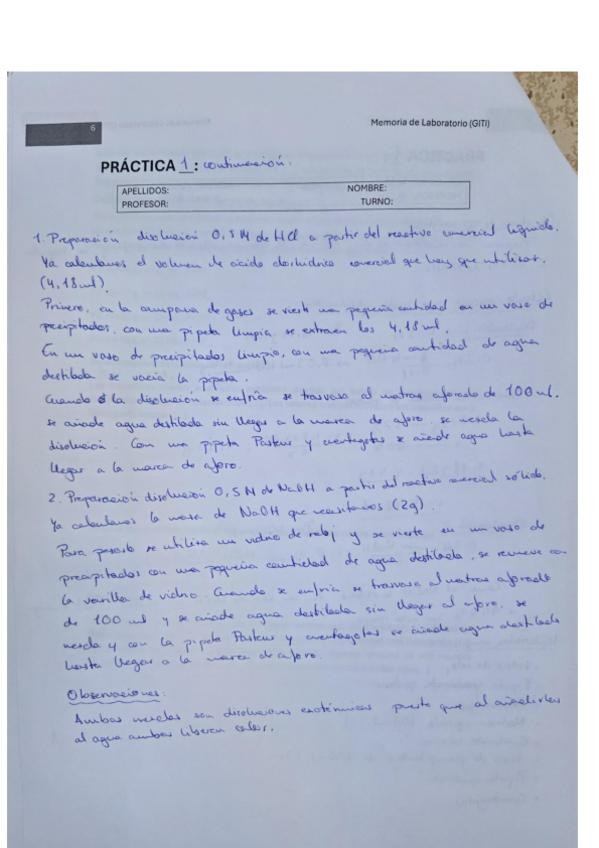 6
Memoria de Laboratorio (GITI)
PRÁCTICA 1: continuación.
APELLIDOS: NOMBRE:
PROFESOR: TURNO:
1. Preparación disolución 0,5 M de HCl a partir del reactivo comercial líquido.
Ya calculamos el volumen de ácido clorhídrico comercial que hay que utilizar.
(4,18 ml).
Primero, en la campana de gases se vierte una pequeña cantidad en un vaso de
precipitados, con una pipeta limpia se extraen los 4,18 ml.
En un vaso de precipitados limpio, con una pequeña cantidad de agua
destilada se vacía la pipeta.
Cuando la disolución se enfría se trasvasa al matraz aforado de 100 ml.
se añade agua destilada sin llegar a la marca de aforo. se mezcla la
disolución. Con una pipeta Pasteur y cuentagotas se añade agua hasta
llegar a la marca de aforo.
2. Preparación disolución 0,5 M de NaOH a partir del reactivo comercial sólido.
Ya calculamos la masa de NaOH que necesitamos (2g).
Para pesarlo se utiliza un vidrio de reloj y se vierte en un vaso de
precipitados con una pequeña cantidad de agua destilada, se remueve con
la varilla de vidrio. Cuando se enfría se trasvasa al matraz aforado
de 100 ml y se añade agua destilada sin llegar al aforo. se
mezcla y con la pipeta Pasteur y cuentagotas se añade agua destilada
hasta llegar a la marca de aforo.
Observaciones:
Ambas mezclas son disoluciones exotérmicas puesto que al añadirles
al agua ambas liberan calor.